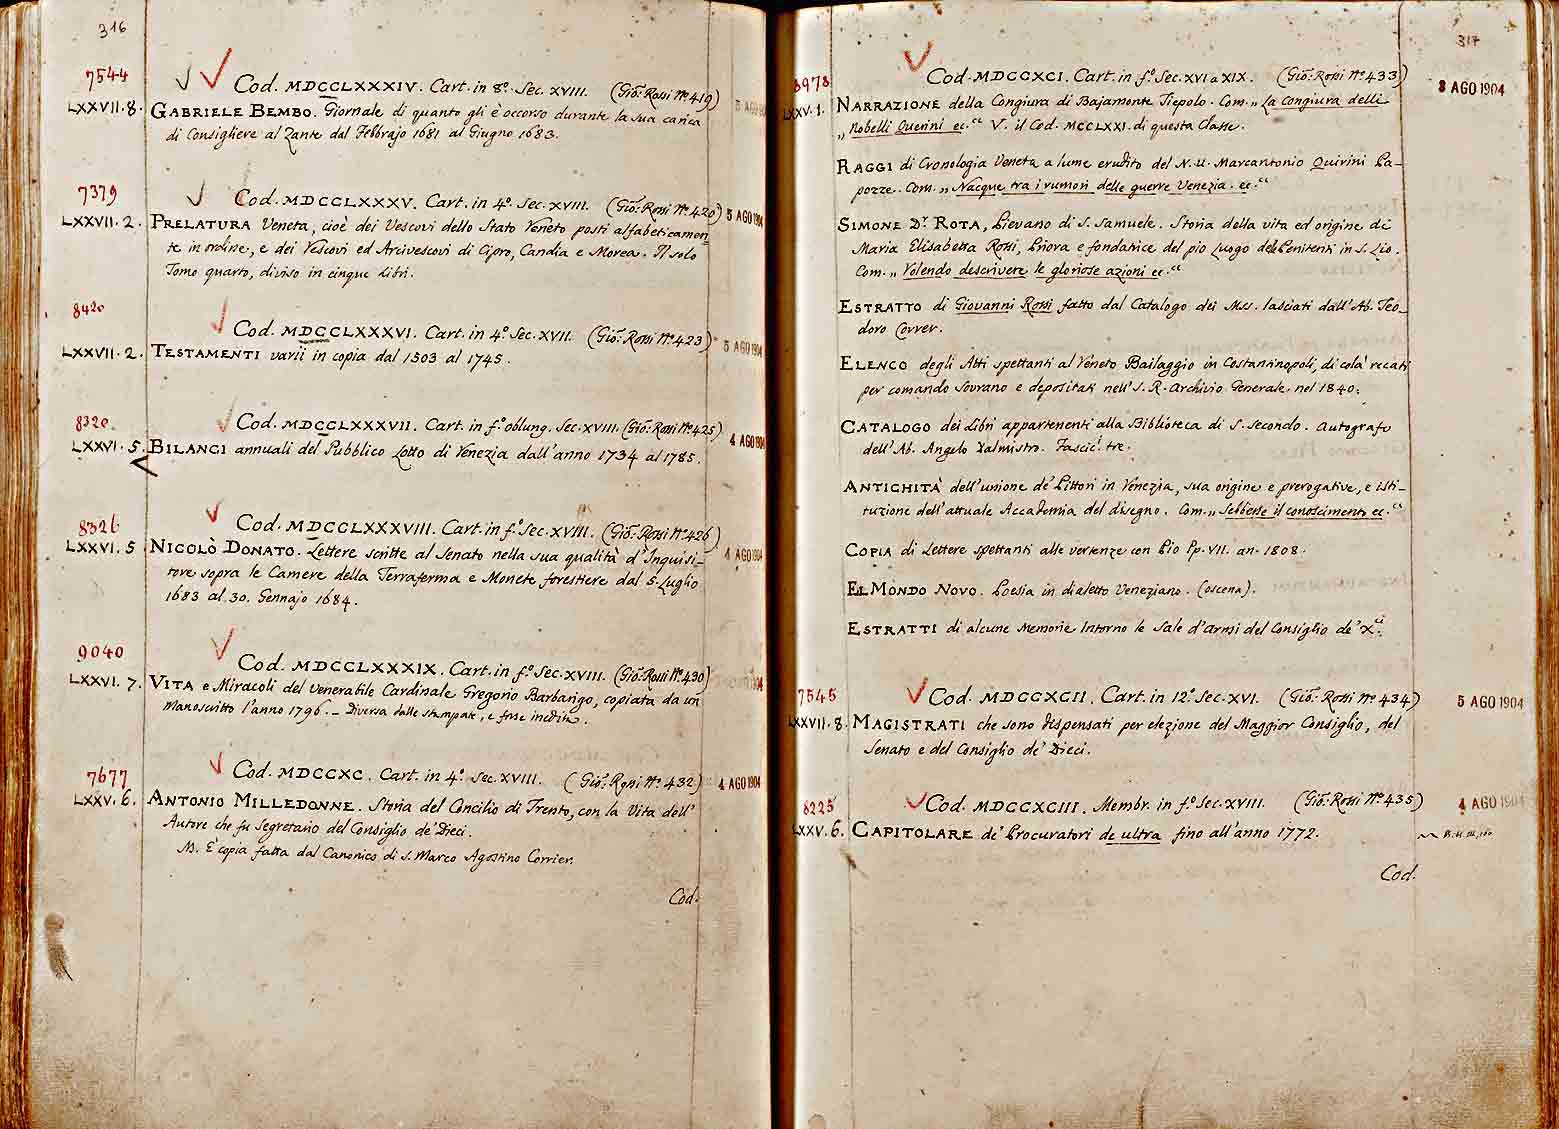 316
7544
Cod. MDCCLXXXIV. Cart. in 8º. Sec. XVIII. (Gio: Rossi Nº 419)
LXXVII. 8. GABRIELE BEMBO. Giornale di quanto gli è occorso durante la sua carica
di Consigliere al Zante dal Febbrajo 1681 al Giugno 1683.
7379
Cod. MDCCLXXXV. Cart. in 4º. Sec. XVIII. (Gio: Rossi Nº 420) 5 AGO 1904
LXXVII. 2. PRELATURA Veneta, cioè dei Vescovi dello Stato Veneto posti alfabeticamen-
te in ordine, e dei Vescovi ed Arcivescovi di Cipro, Candia e Morea. Il solo
Tomo quarto, diviso in cinque Libri.
8420
Cod. MDCCLXXXVI. Cart. in 4º. Sec. XVII. (Gio: Rossi Nº 423) 5 AGO 1904
LXXVII. 2. TESTAMENTI varii in copia dal 1503 al 1745.
8320
Cod. MDCCLXXXVII. Cart. in fº. oblung. Sec. XVIII. (Gio: Rossi Nº 425) 4 AGO 1904
LXXVI. 5. BILANCI annuali del Pubblico Lotto di Venezia dall'anno 1734 al 1785.
8326
Cod. MDCCLXXXVIII. Cart. in fº. Sec. XVIII. (Gio: Rossi Nº 426)
LXXVI. 5 NICOLÒ DONATO. Lettere scritte al Senato nella sua qualità d'Inquisi- 4 AGO 1904
tore sopra le Camere della Terraferma e Monete forestiere dal 5. Luglio
1683 al 30. Gennajo 1684.
9040
Cod. MDCCLXXXIX. Cart. in fº. Sec. XVIII. (Gio: Rossi Nº 430)
LXXVI. 7. VITA e Miracoli del Venerabile Cardinale Gregorio Barbarigo, copiata da un
Manoscritto l'anno 1796. – Diversa dalle stampate, e forse inedita.
7677
Cod. MDCCXC. Cart. in 4º. Sec. XVIII. (Gio: Rossi Nº 432) 4 AGO 1904
LXXV. 6. ANTONIO MILLEDONNE. Storia del Concilio di Trento, con la Vita dell'
Autore che fu Segretario del Consiglio de' Dieci.
È copia fatta dal Canonico di S. Marco Agostino Corrier.
Cod.
317
8978
Cod. MDCCXCI. Cart. in fº. Sec. XVI a XIX. (Gio: Rossi Nº 433) 3 AGO 1904
LXXV. 1. NARRAZIONE della Congiura di Bajamonte Tiepolo. Com. „ La congiura delli
„ Nobelli Querini ec." V. il Cod. MCCLXXI. di questa Classe.
RAGGI di Cronologia Veneta a lume erudito del N. U. Marcantonio Quirini Pa-
pozze. Com. „ Nacque tra i rumori delle guerre Venezia. ec."
SIMONE Dr. ROTA, Pievano di S. Samuele. Storia della vita ed origine di
Maria Elisabetta Rossi, Priora e fondatrice del pio Luogo delle Penitenti in S. Lio.
Com. „ Volendo descrivere le gloriose azioni ec."
ESTRATTO di Giovanni Rossi fatto dal Catalogo dei Mss. lasciati dall'Ab. Teo-
doro Correr.
ELENCO degli Atti spettanti al Veneto Bailaggio in Costantinopoli, di colà recati
per comando Sovrano e depositati nell'I. R. Archivio Generale nel 1840.
CATALOGO dei Libri appartenenti alla Biblioteca di S. Secondo. Autografo
dell'Ab. Angelo Dalmistro. Fascic. tre.
ANTICHITÀ dell'unione de' Pittori in Venezia, sua origine e prerogative, e isti-
tuzione dell'attuale Accademia del disegno. Com. „ Sebbene il conoscimento ec."
COPIA di Lettere spettanti alle vertenze con Pio Pp. VII. an. 1808.
EL MONDO NOVO. Poesia in dialetto Veneziano. (oscena).
ESTRATTI di alcune Memorie intorno le Sale d'armi del Consiglio de' X.ci
7545
Cod. MDCCXCII. Cart. in 12º. Sec. XVI. (Gio: Rossi Nº 434) 5 AGO 1904
LXXVII. 8. MAGISTRATI che sono dispensati per elezione del Maggior Consiglio, del
Senato e del Consiglio de' Dieci.
8225
Cod. MDCCXCIII. Membr. in fº. Sec. XVIII. (Gio: Rossi Nº 435) 4 AGO 1904
LXXV. 6. CAPITOLARE de' Procuratori de ultra fino all'anno 1772.
Cod.